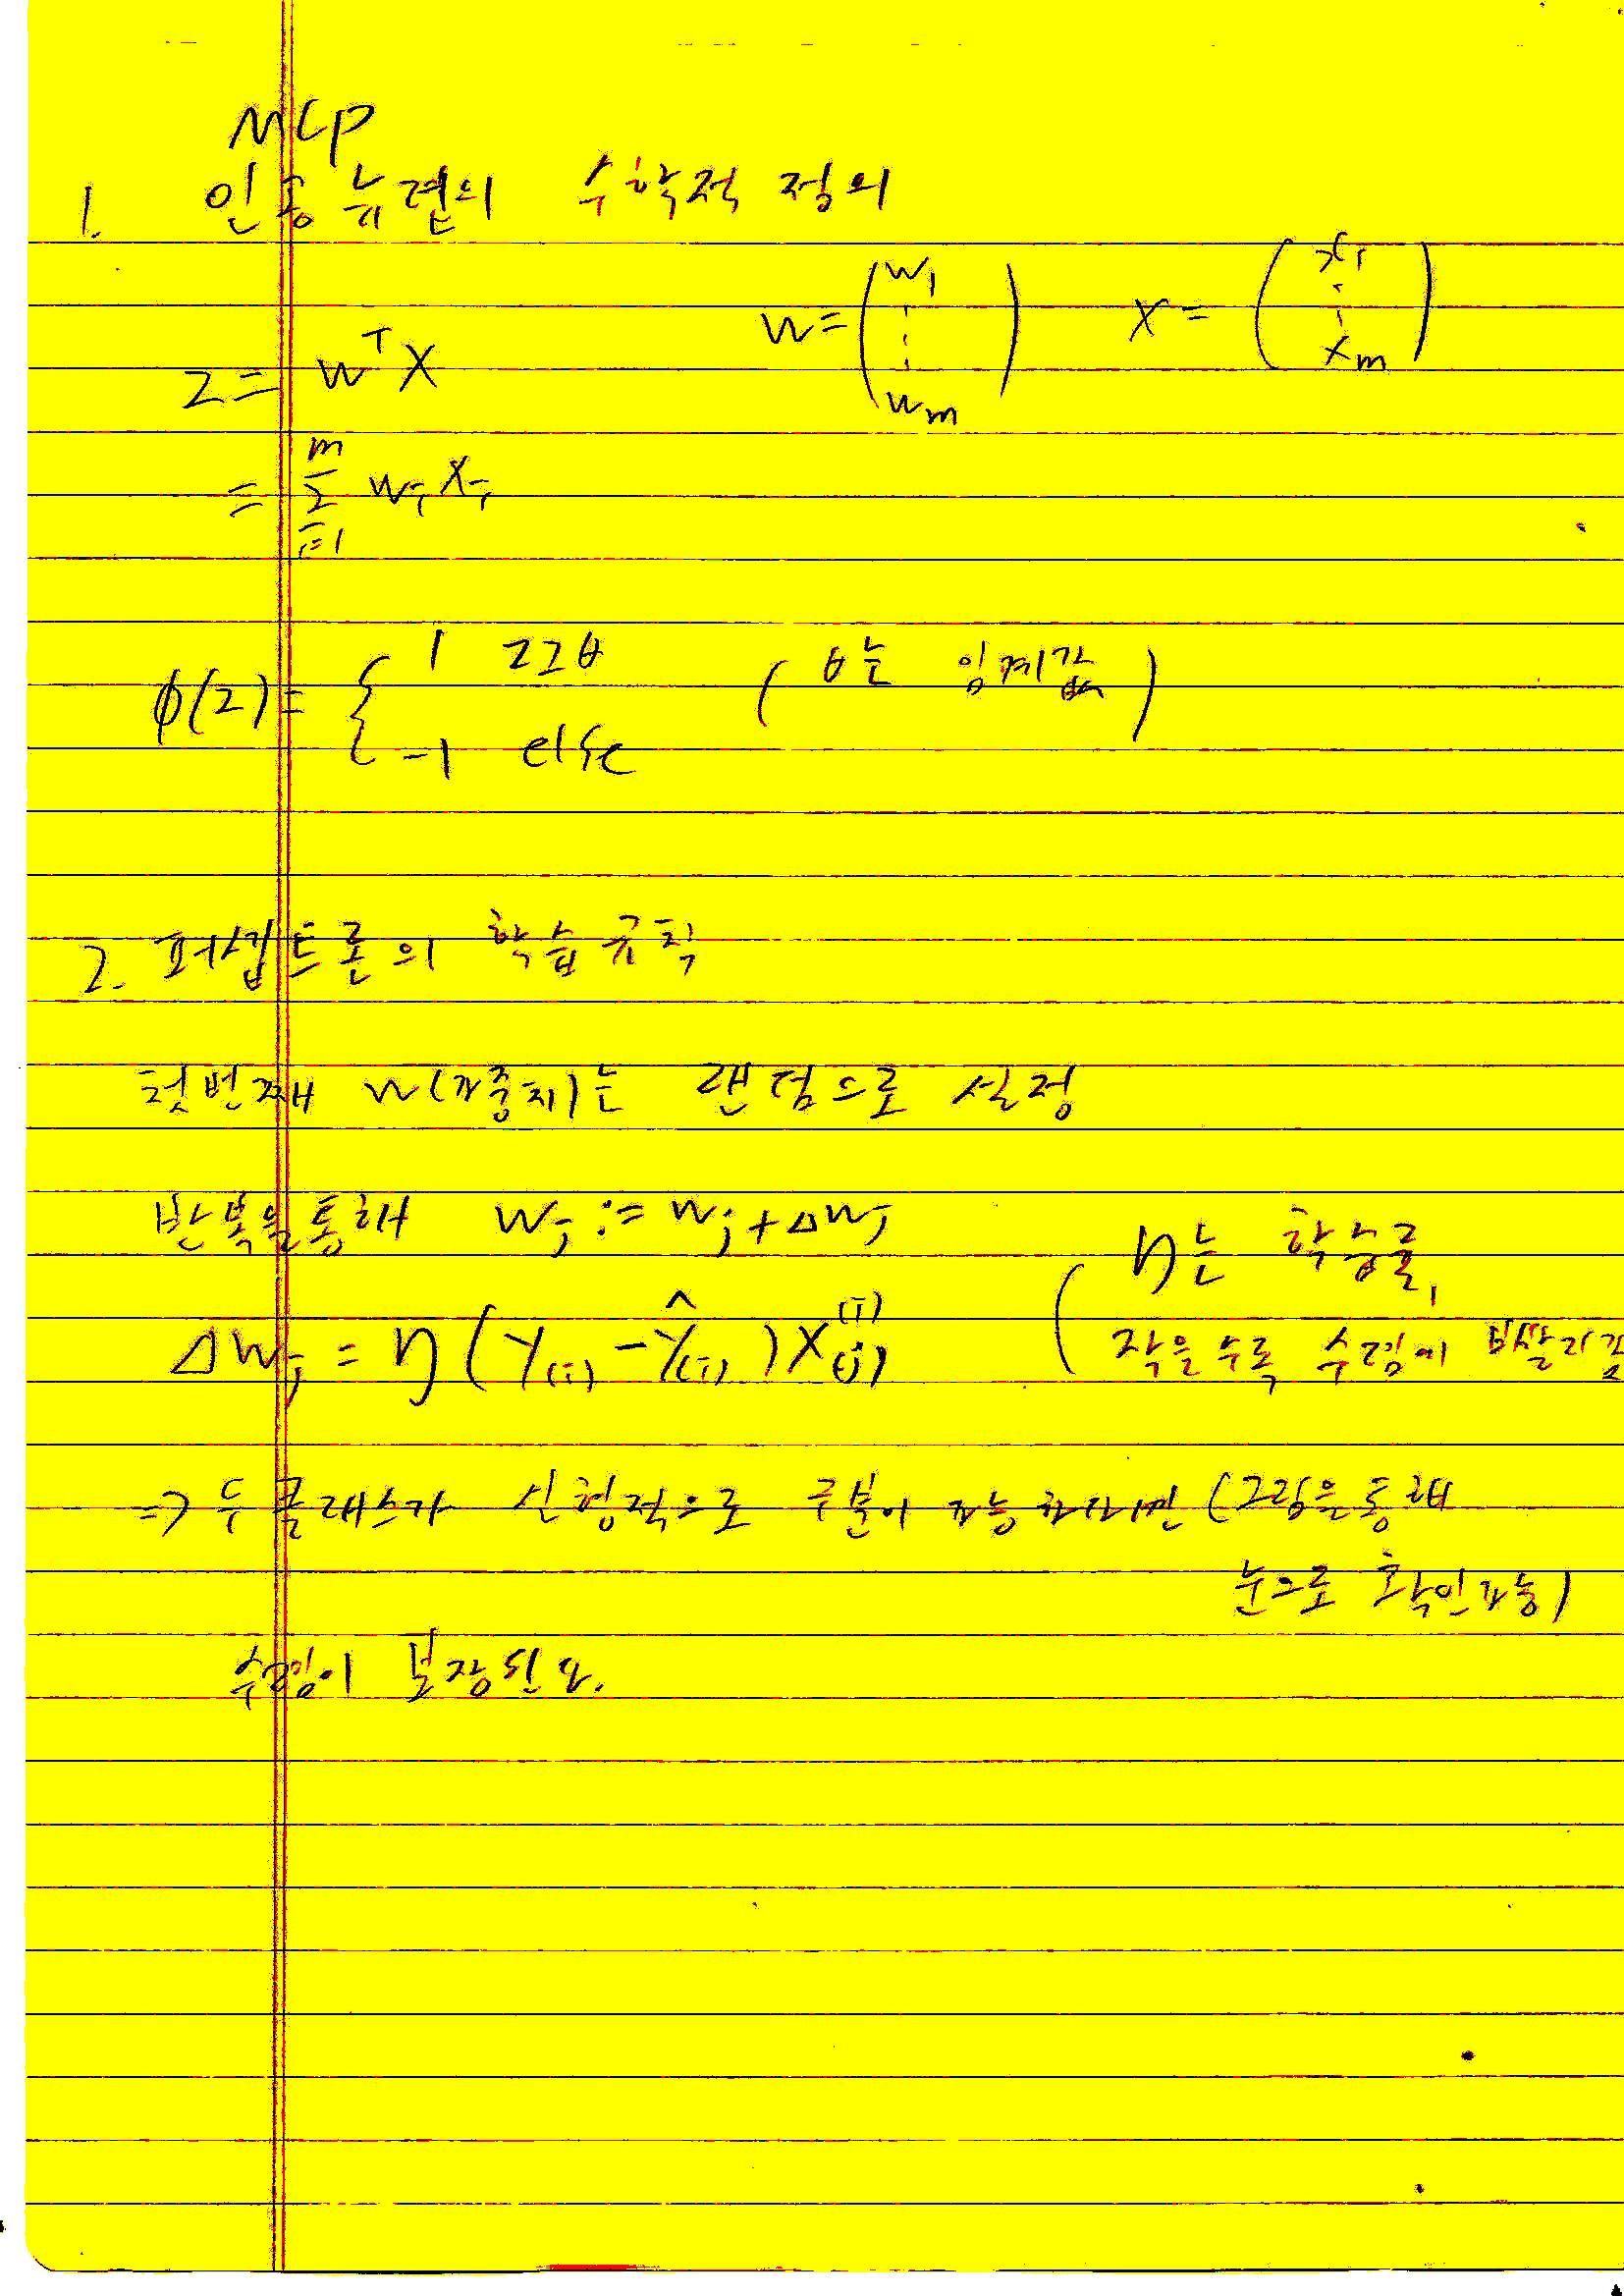 MCP
1. 인공 뉴런의 수학적 정의
z = w^T x    w = (w_1 ⋮ w_m)    x = (x_1 ⋮ x_m)
= Σ_{i=1}^{m} w_i x_i
φ(z) = { 1 z≥θ    (θ는 임계값)
-1 else
2. 퍼셉트론의 학습규칙
첫번째 w(가중치)는 랜덤으로 설정
반복을 통해 w_j := w_j + Δw_j
Δw_j = η(y_(i) - ŷ_(i)) x_(j)^(i)    (η는 학습률,
작을수록 수렴이
=> 두 클래스가 선형적으로 구분이 가능하다면 (그림을 통해
눈으로 확인가능)
수렴이 보장된다.